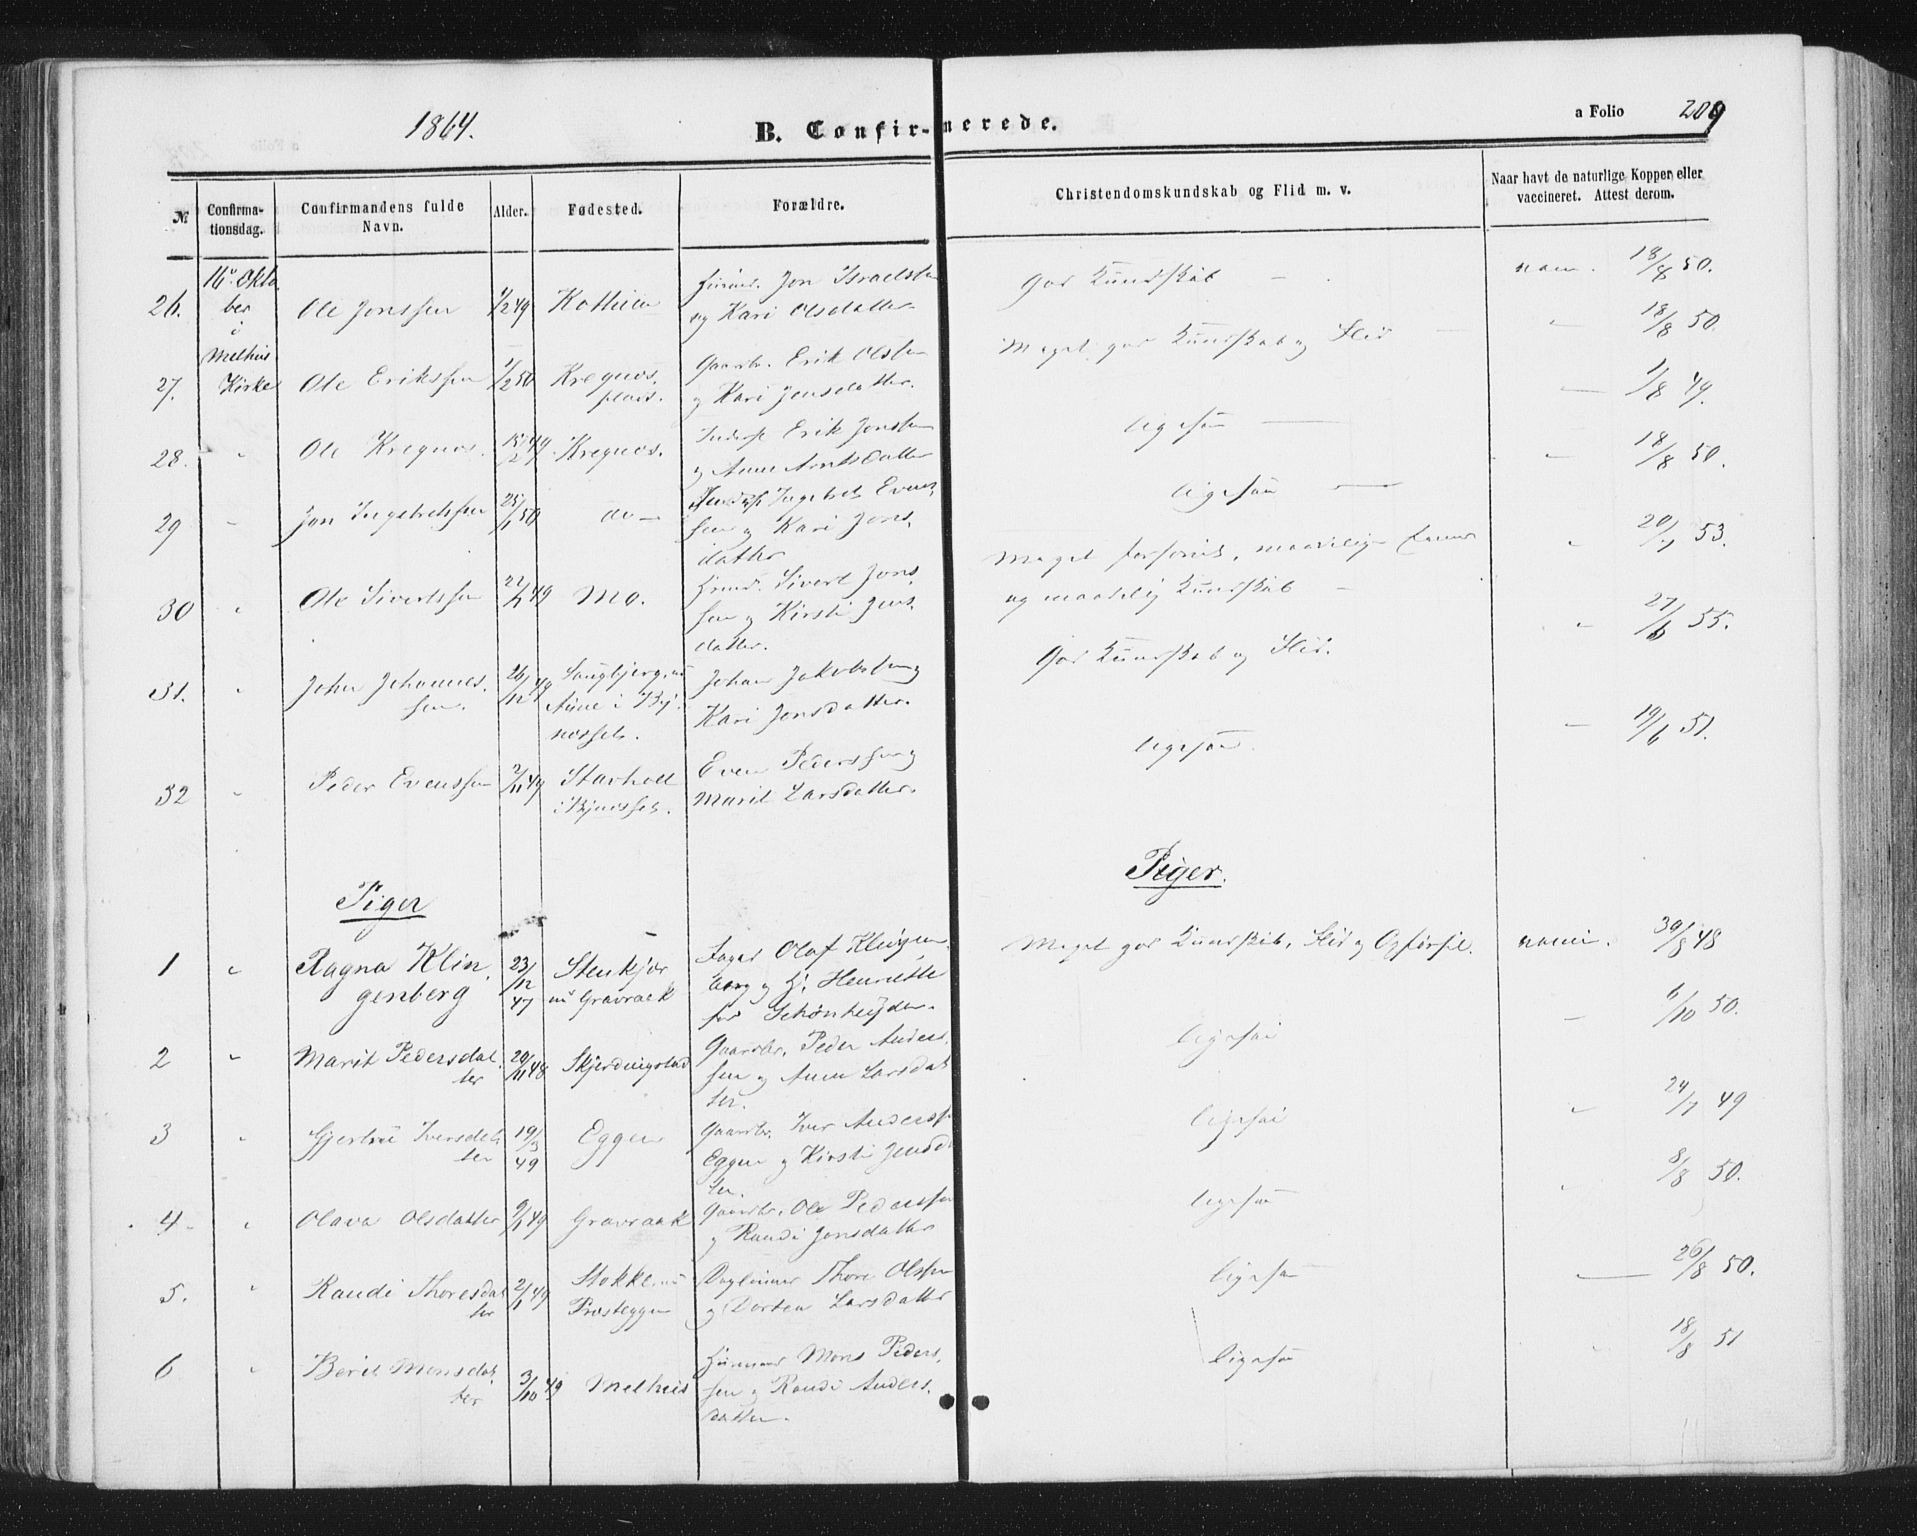 1864.
B. Confir-merede.
a Folio 209
№
Confirma-tionsdag.
Confirmandens fulde Navn.
Alder.
Fødested.
Forældre.
Christendomskundskab og Flid m. v.
Naar havt de naturlige Kopper, eller vaccineret. Attest derom.
26. 16. Oktober i Melhus Kirke
Ole Jonssen
1/2 49
Jon Israelsen
og Kari Olsdatter
God Kundskab -
18/8 50.
27.
Ole Erikssen
1/2 50
Kregnes
plads.
Gaardbr. Erik Olsen
og Kari Jensdatter.
Meget god Kundskab og Flid -
" 18/8 50.
28. "
Ole Kregnes.
15/2 49
Kregnes.
Erik Jonssen
og Anne Arntsdatter
ligesaa
— 1/8 49.
29 "
Jon Ingebretssen
25/1 50
do -
Ingebret Even-
sen og Kari Jons
datter
ligesaa
" 18/8 50.
30 "
Ole Sivertssen
22/7 49
Mo.
Sivert Jons
sen og Kirsti Jens
datter.
Meget
og maadelig Kundskab -
" 20/7 53.
31. "
John Johannes-
sen.
26/12 49
Johan Jakobsen og
Kari Jonsdatter.
God Kundskab og Flid.
" 27/6 55.
32 "
Peder Evenssen
2/11 49
Even Pederssen og
Marit Larsdatter.
ligesaa.
- 19/6 51.
Piger
Piger.
1 "
Ragna Klin-
genberg
23/12 47
Stenkjær
nu Gravraak
Olaf Klingen
berg og H. Henriette
før Schønheyder.
Meget god Kundskab, Flid og Opførsel.
30/8 48
2 "
Marit Pedersdat
ter
20/11 48
Skjerdingstad
Gaardbr. Peder Anders
sen og Anne Larsdat
ter.
ligesaa
- 6/10 50.
3 "
Gjertru Iversdat
ter
19/3 49
Eggen
Gaardbr. Iver Anderss.
Eggen og Kirsti Jensda
ter.
ligesaa
" 24/7 49
4 "
Olava Olsdatter
9/1 49
Gravraak
Gaardbr. Ole Pederssen
og Randi Jonsdatter
ligesaa
" 8/8 50.
5. "
Randi Thoresdat
ter
2/1 49
Stokke nu
Prosteggen
Thore Olssen
og Dortea Larsdatter
ligesaa
— 26/8 50.
6 "
Berit Monsdat
ter
3/10 49
Melhus
Mons Peders
sen og Randi Anders
datter.
ligesaa
" 18/8 51